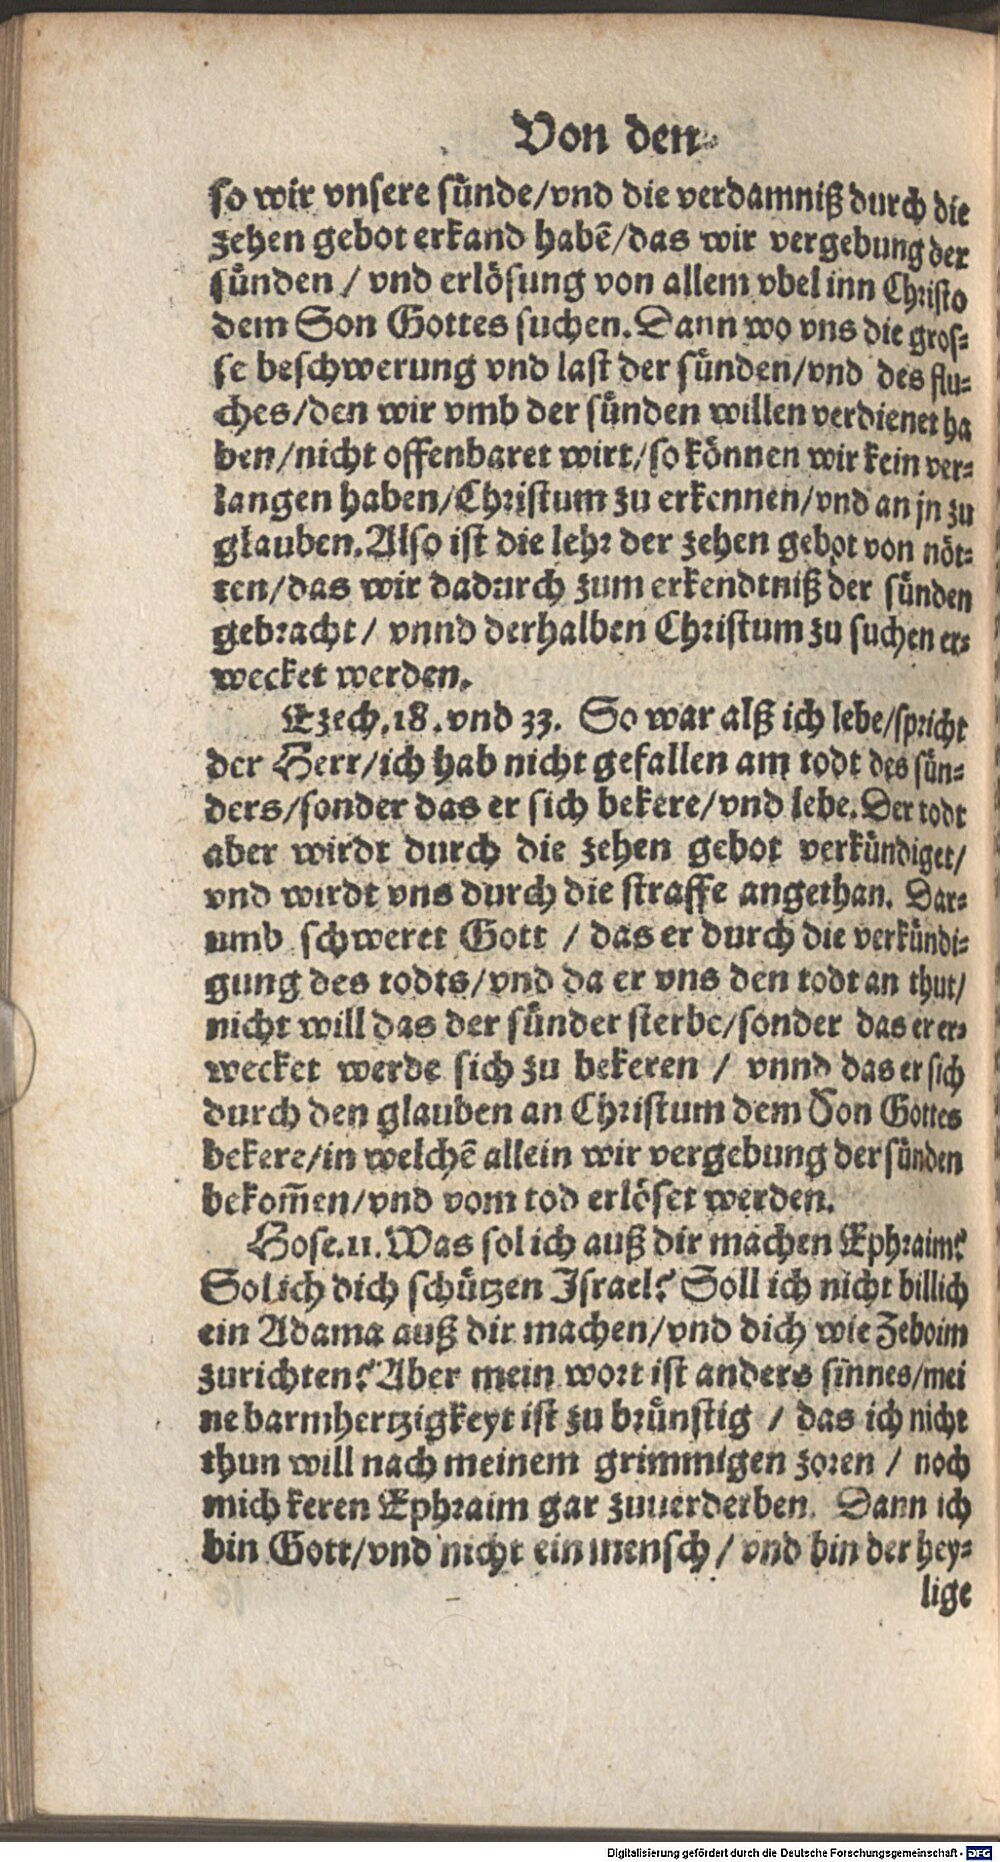 Von den
so wir vnsere sünde/vnd die verdamniß durch die
zehen gebot erkand habẽ/das wir vergebung der
sünden / vnd erlösung von allem vbel inn Christo
dem Son Gottes suchen. Dann wo vns die gros-
se beschwerung vnd last der sünden/vnd des flu-
ches/den wir vmb der sünden willen verdienet ha
ben/nicht offenbaret wirt/so können wir kein ver-
langen haben/Christum zu erkennen/vnd an jn zu
glauben. Also ist die lehr der zehen gebot von nöt-
ten/das wir dadurch zum erkendtniß der sünden
gebracht/ vnnd derhalben Christum zu suchen er-
wecket werden.
Ezech. 18. vnd 33. So war alß ich lebe/spricht
der Herr/ich hab nicht gefallen am todt des sün-
ders/sonder das er sich bekere/vnd lebe. Der todt
aber wirdt durch die zehen gebot verkündiget/
vnd wirdt vns durch die straffe angethan. Dar-
umb schweret Gott / das er durch die verkündi-
gung des todts/vnd da er vns den todt an thut/
nicht will das der sünder sterbe/sonder das er er-
wecket werde sich zu bekeren / vnnd das er sich
durch den glauben an Christum dem Son Gottes
bekere/in welchẽ allein wir vergebung der sünden
bekom̃en/vnd vom tod erlöset werden.
Hose. 11. Was sol ich auß dir machen Ephraim?
Sol ich dich schützen Israel? Soll ich nicht billich
ein Adama auß dir machen/vnd dich wie Zeboim
zurichten? Aber mein wort ist anders sinnes/mei
ne barmhertzigkeyt ist zu brünstig / das ich nicht
thun will nach meinem grimmigen zoren / noch
mich keren Ephraim gar zuuerderben. Dann ich
bin Gott/vnd nicht ein mensch / vnd bin der hey-
lige
Digitalisierung gefördert durch die Deutsche Forschungsgemeinschaft - DFG